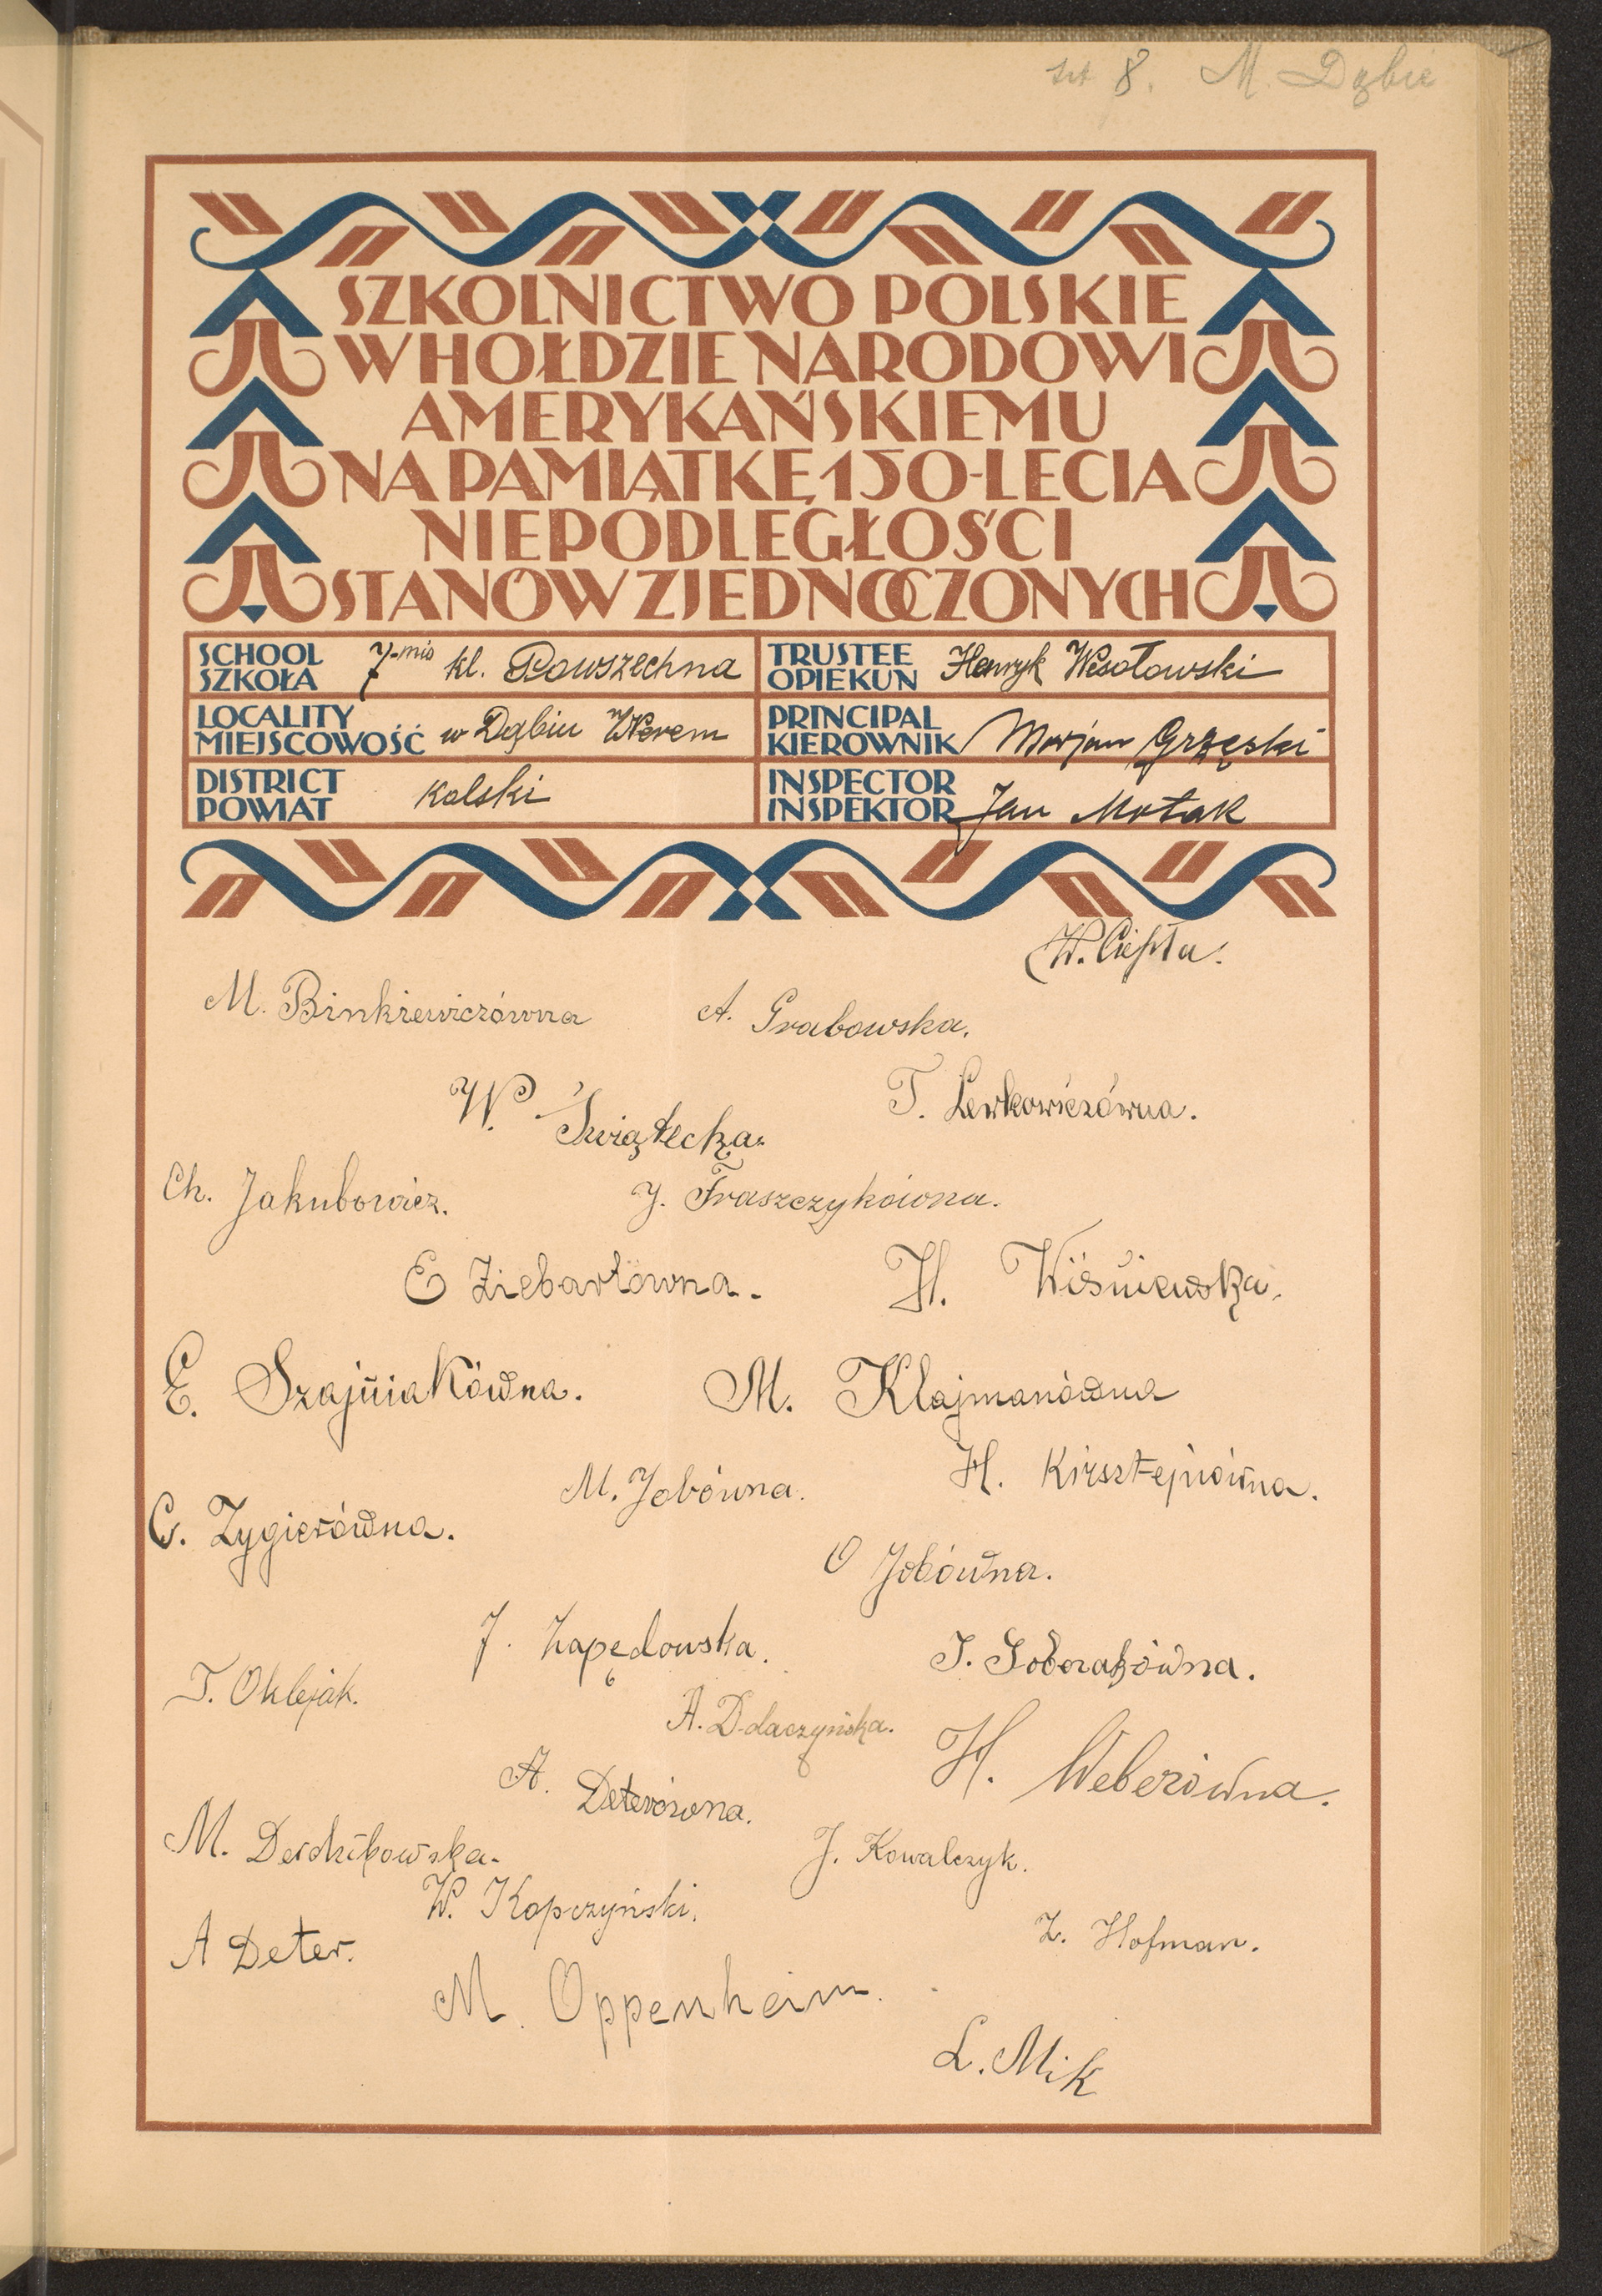 8. M. Dąbie
SZKOLNICTWO POLSKIE
W HOŁDZIE NARODOWI
AMERYKAŃSKIEMU
NA PAMIĄTKĘ 150-LECIA
NIEPODLEGŁOŚCI
STANÓW ZJEDNOCZONYCH
SCHOOL
SZKOŁA
7-mio kl. Powszechna
TRUSTEE
OPIEKUN
Henryk Wesołowski
LOCALITY
MIEJSCOWOŚĆ
w Dąbiu n/Nerem
PRINCIPAL
KIEROWNIK
Marjan Grzęski
DISTRICT
POWIAT
Kolski
INSPECTOR
INSPEKTOR
Jan Motak
W. Ciepła.
M. Binkiewiczówna
A. Grabowska.
W. Świątecka.
T. Lewkowiczówna.
Ch. Jakubowicz.
J. Fraszczykówna.
E Ziebartówna.
H. Wiśniewska.
E. Szajniakówna.
M. Klajmanówna
M. Jobówna.
H. Kirsztejnówna.
C. Zygierówna.
O Jobówna.
J. Zapędowska.
J. Soborakówna.
T. Oklejak.
A. Dolaczyńska.
H. Weberówna.
A. Deterówna.
M. Derdzikowska.
J. Kowalczyk.
W. Kopczyński.
Z. Hofman.
A Deter.
M. Oppenheim.
L. Mik